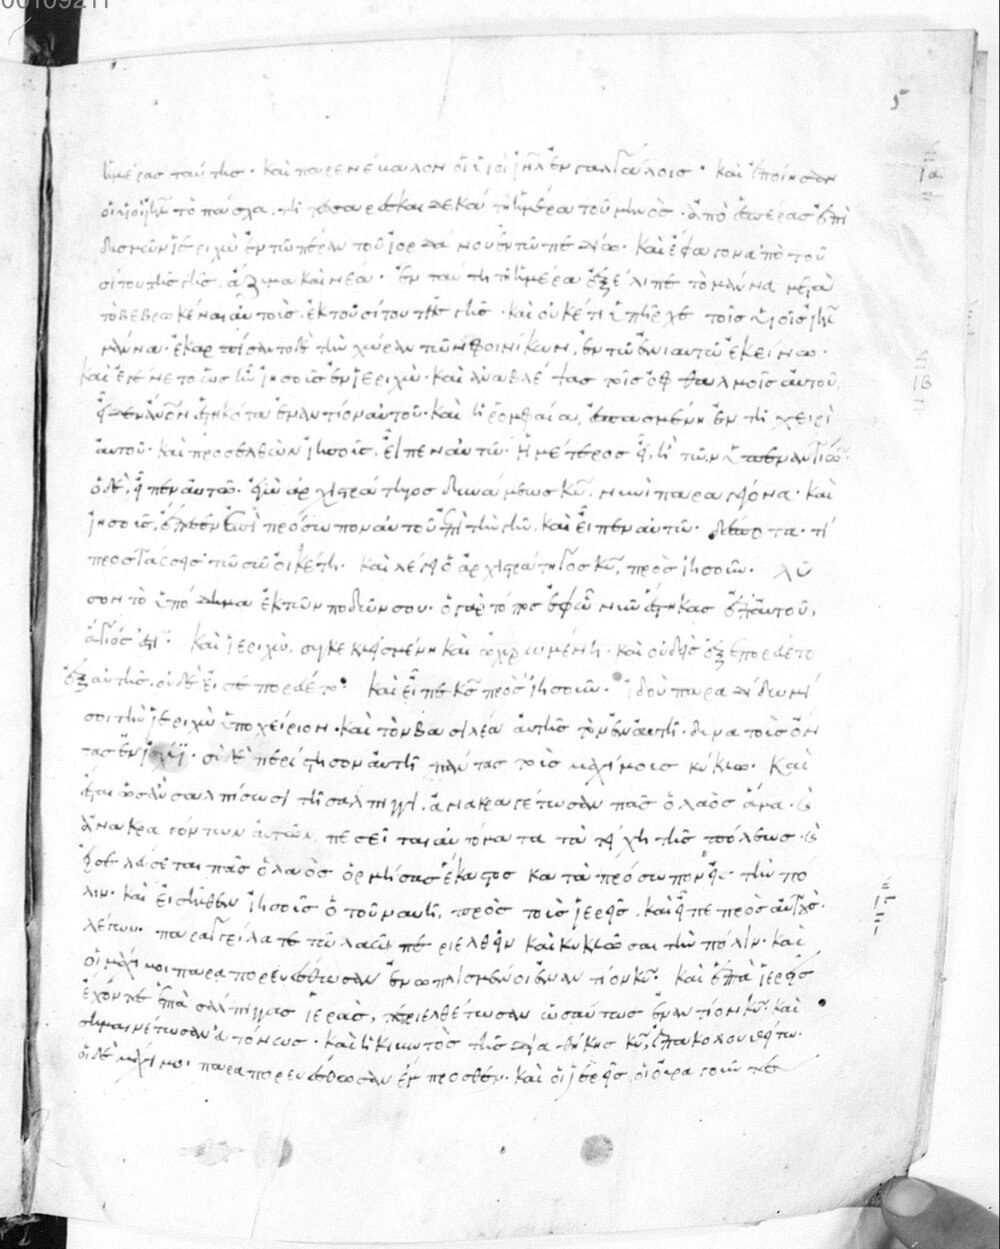 00109211
5
ἡμέρας ταύτης· καὶ παρενέβαλον οἱ υἱοὶ ιηλ ἐν γαλγάλοις· καὶ ἐποίησαν
ια
οἱ υἱοὶ ιηλ τὸ πάσχα, τῇ τεσσαρεσκαιδεκάτῃ ἡμέρα τοῦ μηνὸς· ἀπὸ ἑσπέρας ἐπὶ
δυσμῶν ἱεριχὼ ἐν τῶ πέραν τοῦ ἰορδάνου ἐν τῶ πεδίω· καὶ ἐφάγον ἀπὸ τοῦ
σίτου τῆς γῆς, ἄζυμα καὶ νέα· ἐν ταύτη τῇ ἡμέρα ἐξέλιπε τὸ μάννα μετὰ
τὸ βεβρωκέναι αὐτοὺς ἐκ τοῦ σίτου τῆς γῆς· καὶ οὐκέτι ὑπῆρχε τοῖς υἱοῖς ιηλ
μάννα· ἐκαρπίσαντο δὲ τὴν χώραν τῶν φοινίκων, ἐν τῶ ἐνιαυτῶ ἐκείνω·
καὶ ἐγένετο ὡς ἦν ἰησοῦς ἐν ἱεριχὼ· καὶ ἀναβλέψας τοῖς ὀφθαλμοῖς αὐτοῦ,
ιβ
εἶδεν ἄνον ἑστηκότα ἐναντίον αὐτοῦ· καὶ ἡ ῥομφαία ἐσπασμένη ἐν τῇ χειρὶ
αὐτοῦ· καὶ προσελθὼν ἰησοῦς, εἶπεν αὐτῶ· ἡμέτερος εἶ, ἢ τῶν ὑπεναντίων·
ὁ δὲ, εἶπεν αὐτῶ· ἐγὼ ἀρχιστράτηγος δυνάμεως κυ, νυνὶ παραγέγονα· καὶ
ἰησοῦς, ἔπεσεν ἐπὶ πρόσωπον αὐτοῦ ἐπὶ τὴν γῆν, καὶ εἶπεν αὐτῶ· δέσποτα· τί
προστάσσεις τῶ σῶ οἰκέτη· καὶ λέγει ὁ ἀρχιστράτηγος κυ, πρὸς ἰησοῦν· λῦ
σον τὸ ὑπόδημα ἐκ τῶν ποδῶν σου· ὁ γὰρ τόπος ἐφ' ὧ νῦν ἕστηκας ἐπ' αὐτοῦ,
ἅγιός ἐστι· καὶ ἱεριχὼ, συγκεκλεισμένη καὶ ὠχυρωμένη· καὶ οὐδεὶς ἐξεπορεύετο
ἐξ αὐτῆς, οὐδὲ εἰσεπορεύετο· καὶ εἶπε κς πρὸς ἰησοῦν· ἰδοὺ παραδίδωμί
σοι τὴν ἱεριχὼ ὑποχείριον· καὶ τὸν βασιλέα αὐτῆς τὸν ἐν αὐτῇ· δυνατοὺς ὄν
τας ἐν ἰσχύϊ· σὺ δὲ περίστησον αὐτῇ πάντας τοὺς μαχίμους κύκλω· καὶ
ἔσται ὡς ἂν σαλπίσωσι τῇ σάλπιγγι, ἀνακραγέτωσαν πᾶς ὁ λαὸς ἅμα· καὶ
ἀνακραγόντων αὐτῶν, πεσεῖται αὐτόματα τὰ τείχη τῆς πόλεως· καὶ
εἰσελεύσεται πᾶς ὁ λαὸς ὁρμήσας ἕκαστος κατὰ πρόσωπον εἰς τὴν πό
λιν· καὶ εἰσῆλθεν ἰησοῦς ὁ τοῦ ναυῆ, πρὸς τοὺς ἱερεῖς· καὶ εἶπε πρὸς αὐτοὺς
ιγ
λέγων· παραγγείλατε τῶ λαῶ περιελθεῖν καὶ κυκλῶσαι τὴν πόλιν· καὶ
οἱ μάχιμοι παραπορευέσθωσαν ἐνωπλισμένοι ἐναντίον κυ· καὶ ἑπτὰ ἱερεῖς
ἔχοντες ἑπτὰ σάλπιγγας ἱερὰς, περιελθέτωσαν ὡσαύτως ἐναντίον κυ· καὶ
σημαινέτωσαν εὐτόνως· καὶ ἡ κιβωτὸς τῆς διαθήκης κυ, ἐπακολουθείτω·
οἱ δὲ μάχιμοι παραπορευέσθωσαν ἔμπροσθεν· καὶ οἱ ἱερεῖς, οἱ οὐραγοῦντες